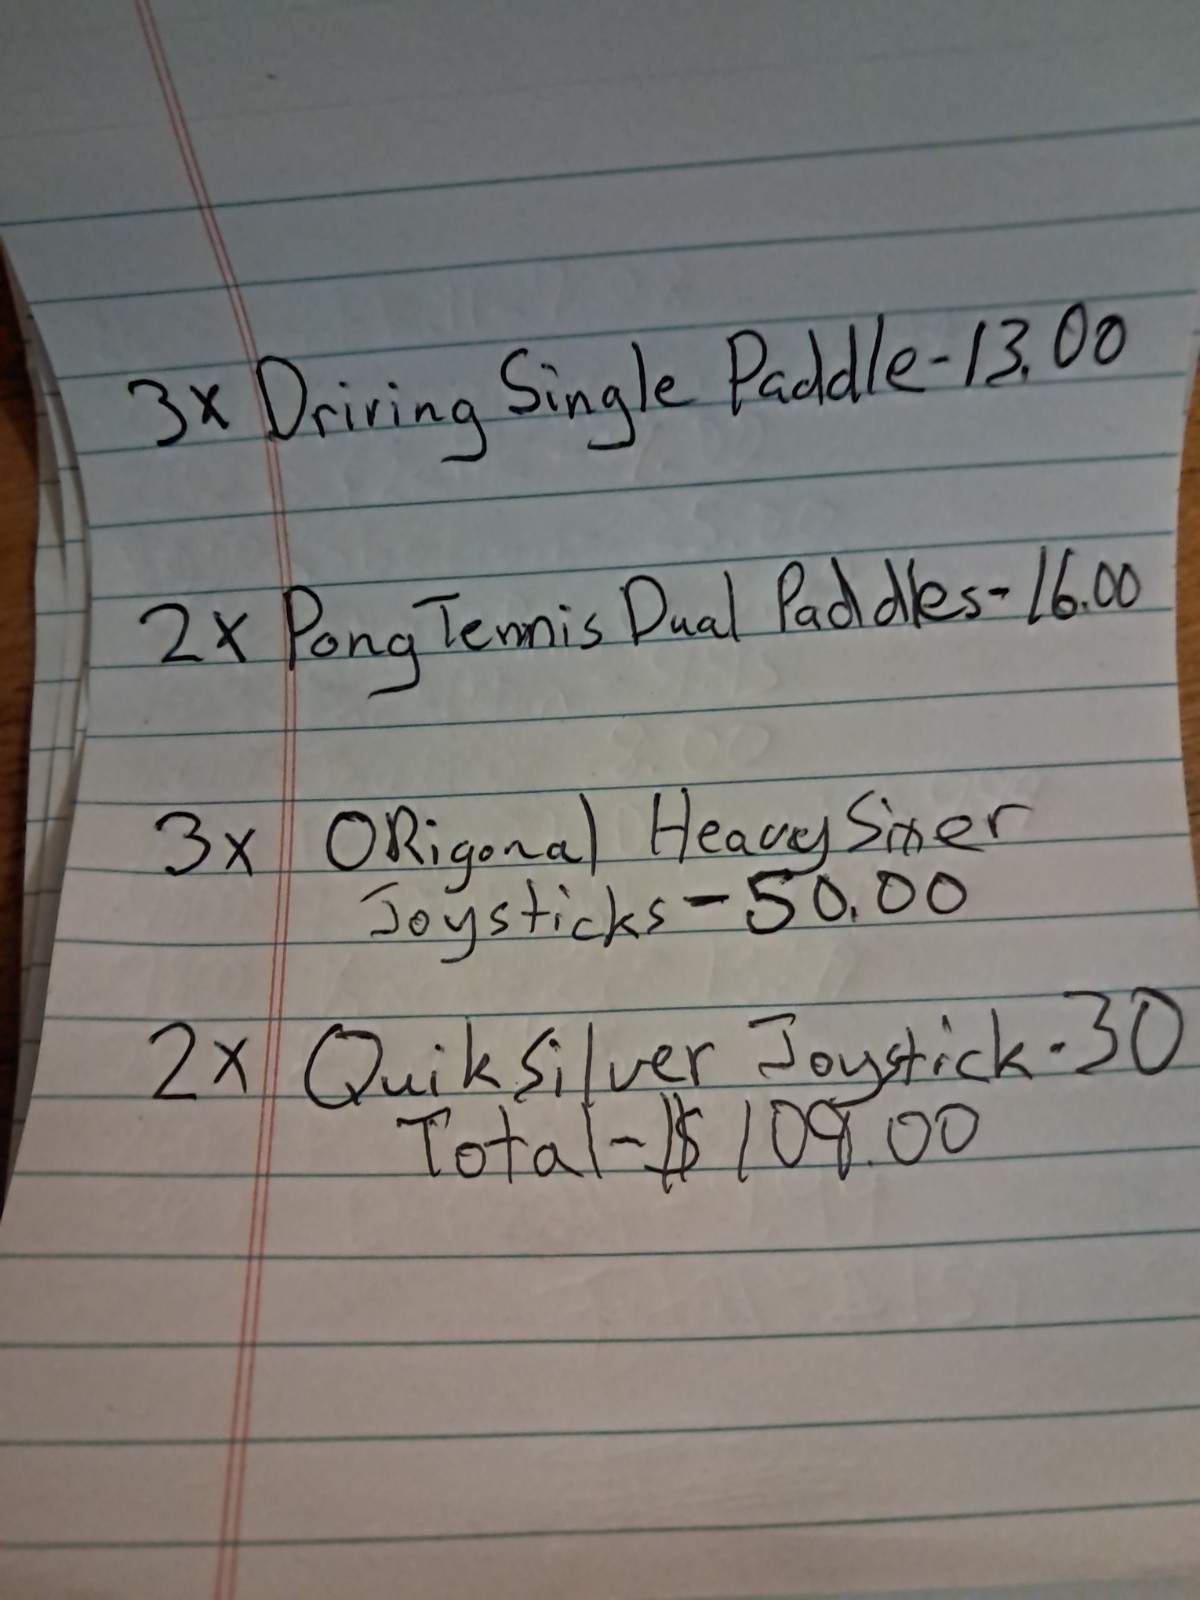 3x Driving Single Paddle-13.00
2x Pong Tennis Dual Paddles-16.00
3x ORigonal Heavy Sixer
Joysticks-50.00
2x QuikSilver Joystick-30
Total-$109.00